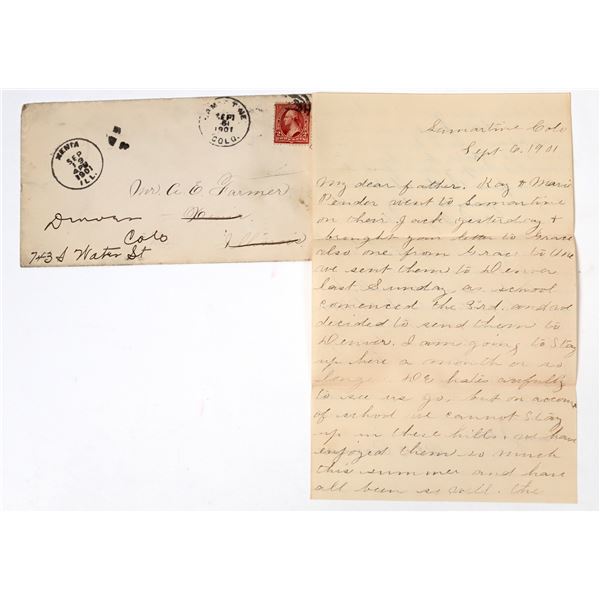 LAMARTINE
SEP
6
1901
COLO.
XENIA
SEP
19
1901
ILL.
Mr. A. E. Farmer
Xenia
Illinois
Denver
Colo
743 S Water St
Lamartine Colo
Sept 6, 1901
My dear father. Ray & Marie
Pender went to Lamartine
on their Jack yesterday &
brought your letter to Grace
also one from Grace to
we sent them to Denver
last Sunday as school
comenced the 3rd. and we
decided to send them to
Denver. I am going to stay
up here a month or so
longer. hates awfully
to see us go, but on account
of school we cannot stay
up in these hills. we have
enjoyed them so much
this summer and have
all been so well. the